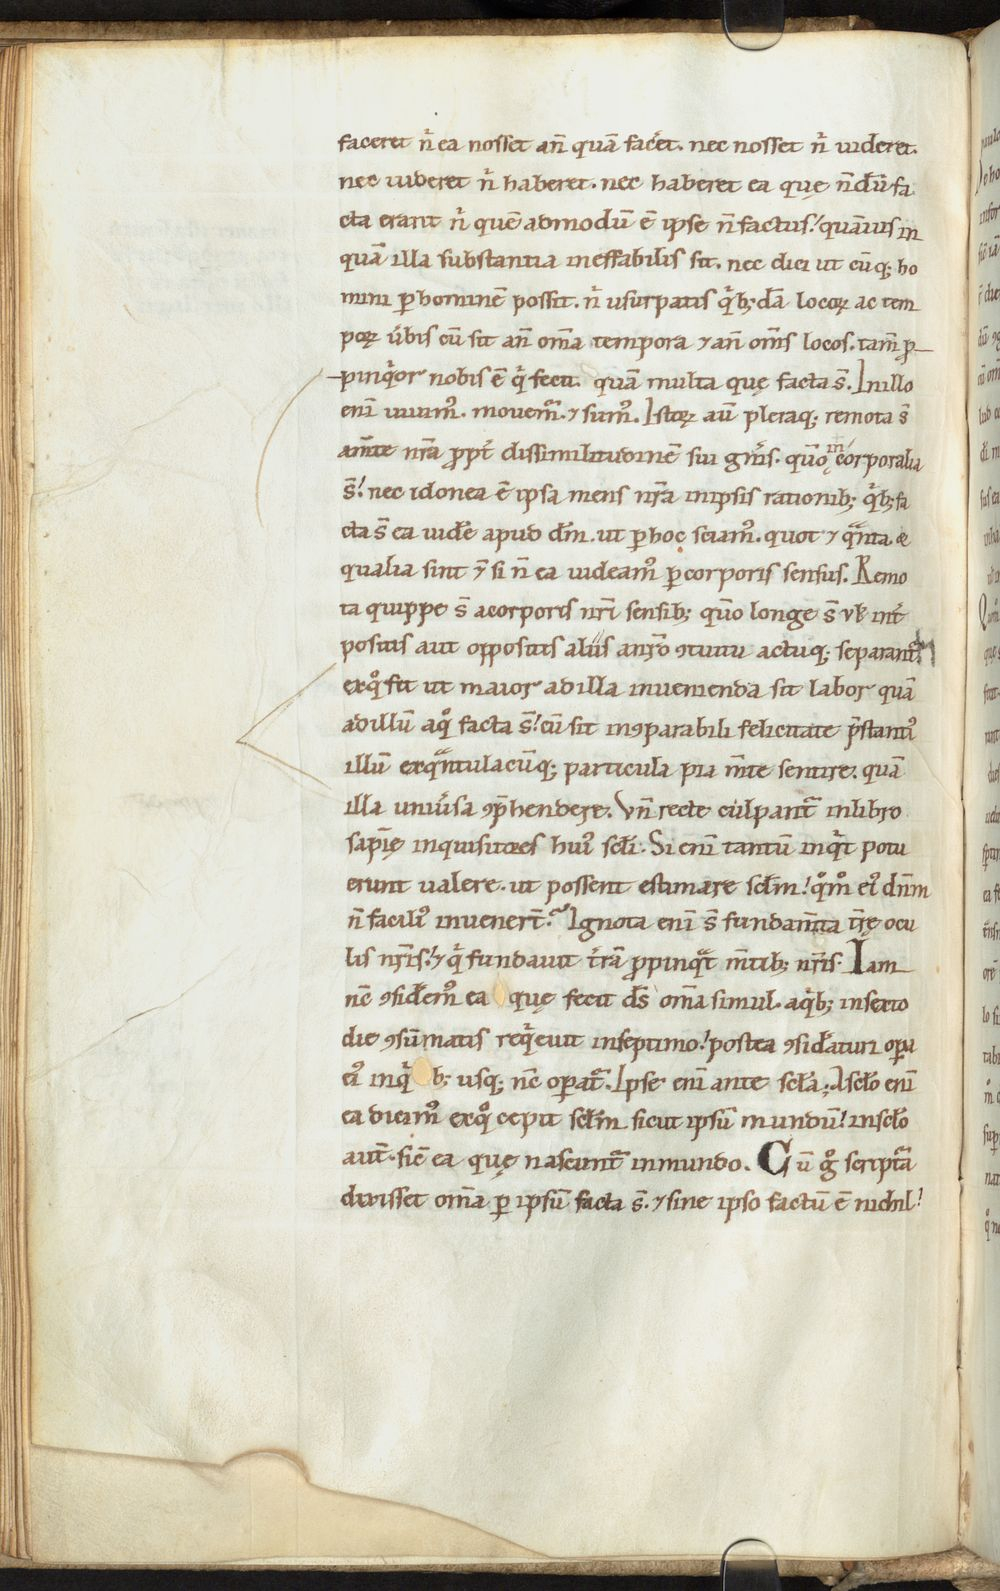 faceret n̄ ea nosset an̄ quā fac̄et. nec nosset n̄ uideret.
nec uideret n̄ haberet. nec haberet ea quę n̄dū fa
cta erant n̄ quē admodū ē ipse n̄ factus! quāuis in
quā illa substantia ineffabilis sit. nec dici ut cūq; ho
mini ꝑ hominē possit. n̄ usurpatis qͥb;dā locoꝝ ac tem
poꝝ ūbis cū sit an̄ om̄a tempora ⁊ an̄ om̄s locos. tam̄ ꝓ
pinqͥor nobis ē qͥ fecit. quā multa quę facta s̄. In illo
eni uiuimꝰ. mouemᷣ. ⁊ sumꝰ. Istoꝝ aū pleraq; remota s̄
a m̄te nr̄a ꝓpt̄ dissimilitudinē sui gn̄is. quō incorporalia
s̄! nec idonea ē ipsa mens nr̄a in ipsis rationib; qͥb; fa
cta s̄ ea uidē apud dm̄. ut ꝑ hoc sciamꝰ. quot ⁊ qᷓnta &
qualia sint &̄ si n̄ ea uideamꝰ ꝑ corporis sensus. Remo
ta quippe s̄ a corporis nr̄i sensib; quō longe s̄ ul̄ int̄
positis aut oppositis aliis a nr̄o ꝯtuitu actuq; separantᷣ.
ex qͦ fit ut maior ad illa inuenienda sit labor quā
ad illū a qͦ facta s̄! cū sit inꝯparabili felicitate p̄stantiꝰ
illū ex qᷓntulacūq; particula pia m̄te sentire. quā
illa uniūsa ꝯp̄hendere. Vn̄ recte culpantᷣ in libro
sapīę inquisitores huiꝰ sc̄li. Si eni tantū inqͥt potu
erunt ualere. ut possent estimare sc̄lm! qͦmͦ eiꝰ dn̄m
n̄ faciliꝰ inuener̄t. Ignota eni s̄ fundam̄ta t̄rę ocu
lis nr̄is! ⁊ qͥ fundauit t̄rā ꝓpinqᷓt m̄tib; nr̄is. Iam
nc̄ ꝯsidem̄ꝰ ea quę fecit ds̄ om̄a simul. a qͥb; in sexto
die ꝯsūmatis reqͥeuit in septimo! postea ꝯsid̄aturi oꝑa
eiꝰ in qͥb; usq; nc̄ oꝑatᷣ. Ipse eni ante sc̄la; A sc̄lo eni
ea dicimꝰ ex qͦ cepit sc̄lm sicut ipsū mundū! in sc̄lo
aut̄. sic̄ ea quę nascuntᷣ in mundo. Cū gͦ scriptᷓa
dixisset om̄a ꝑ ipsū facta s̄. ⁊ sine ipso factū ē nichil!